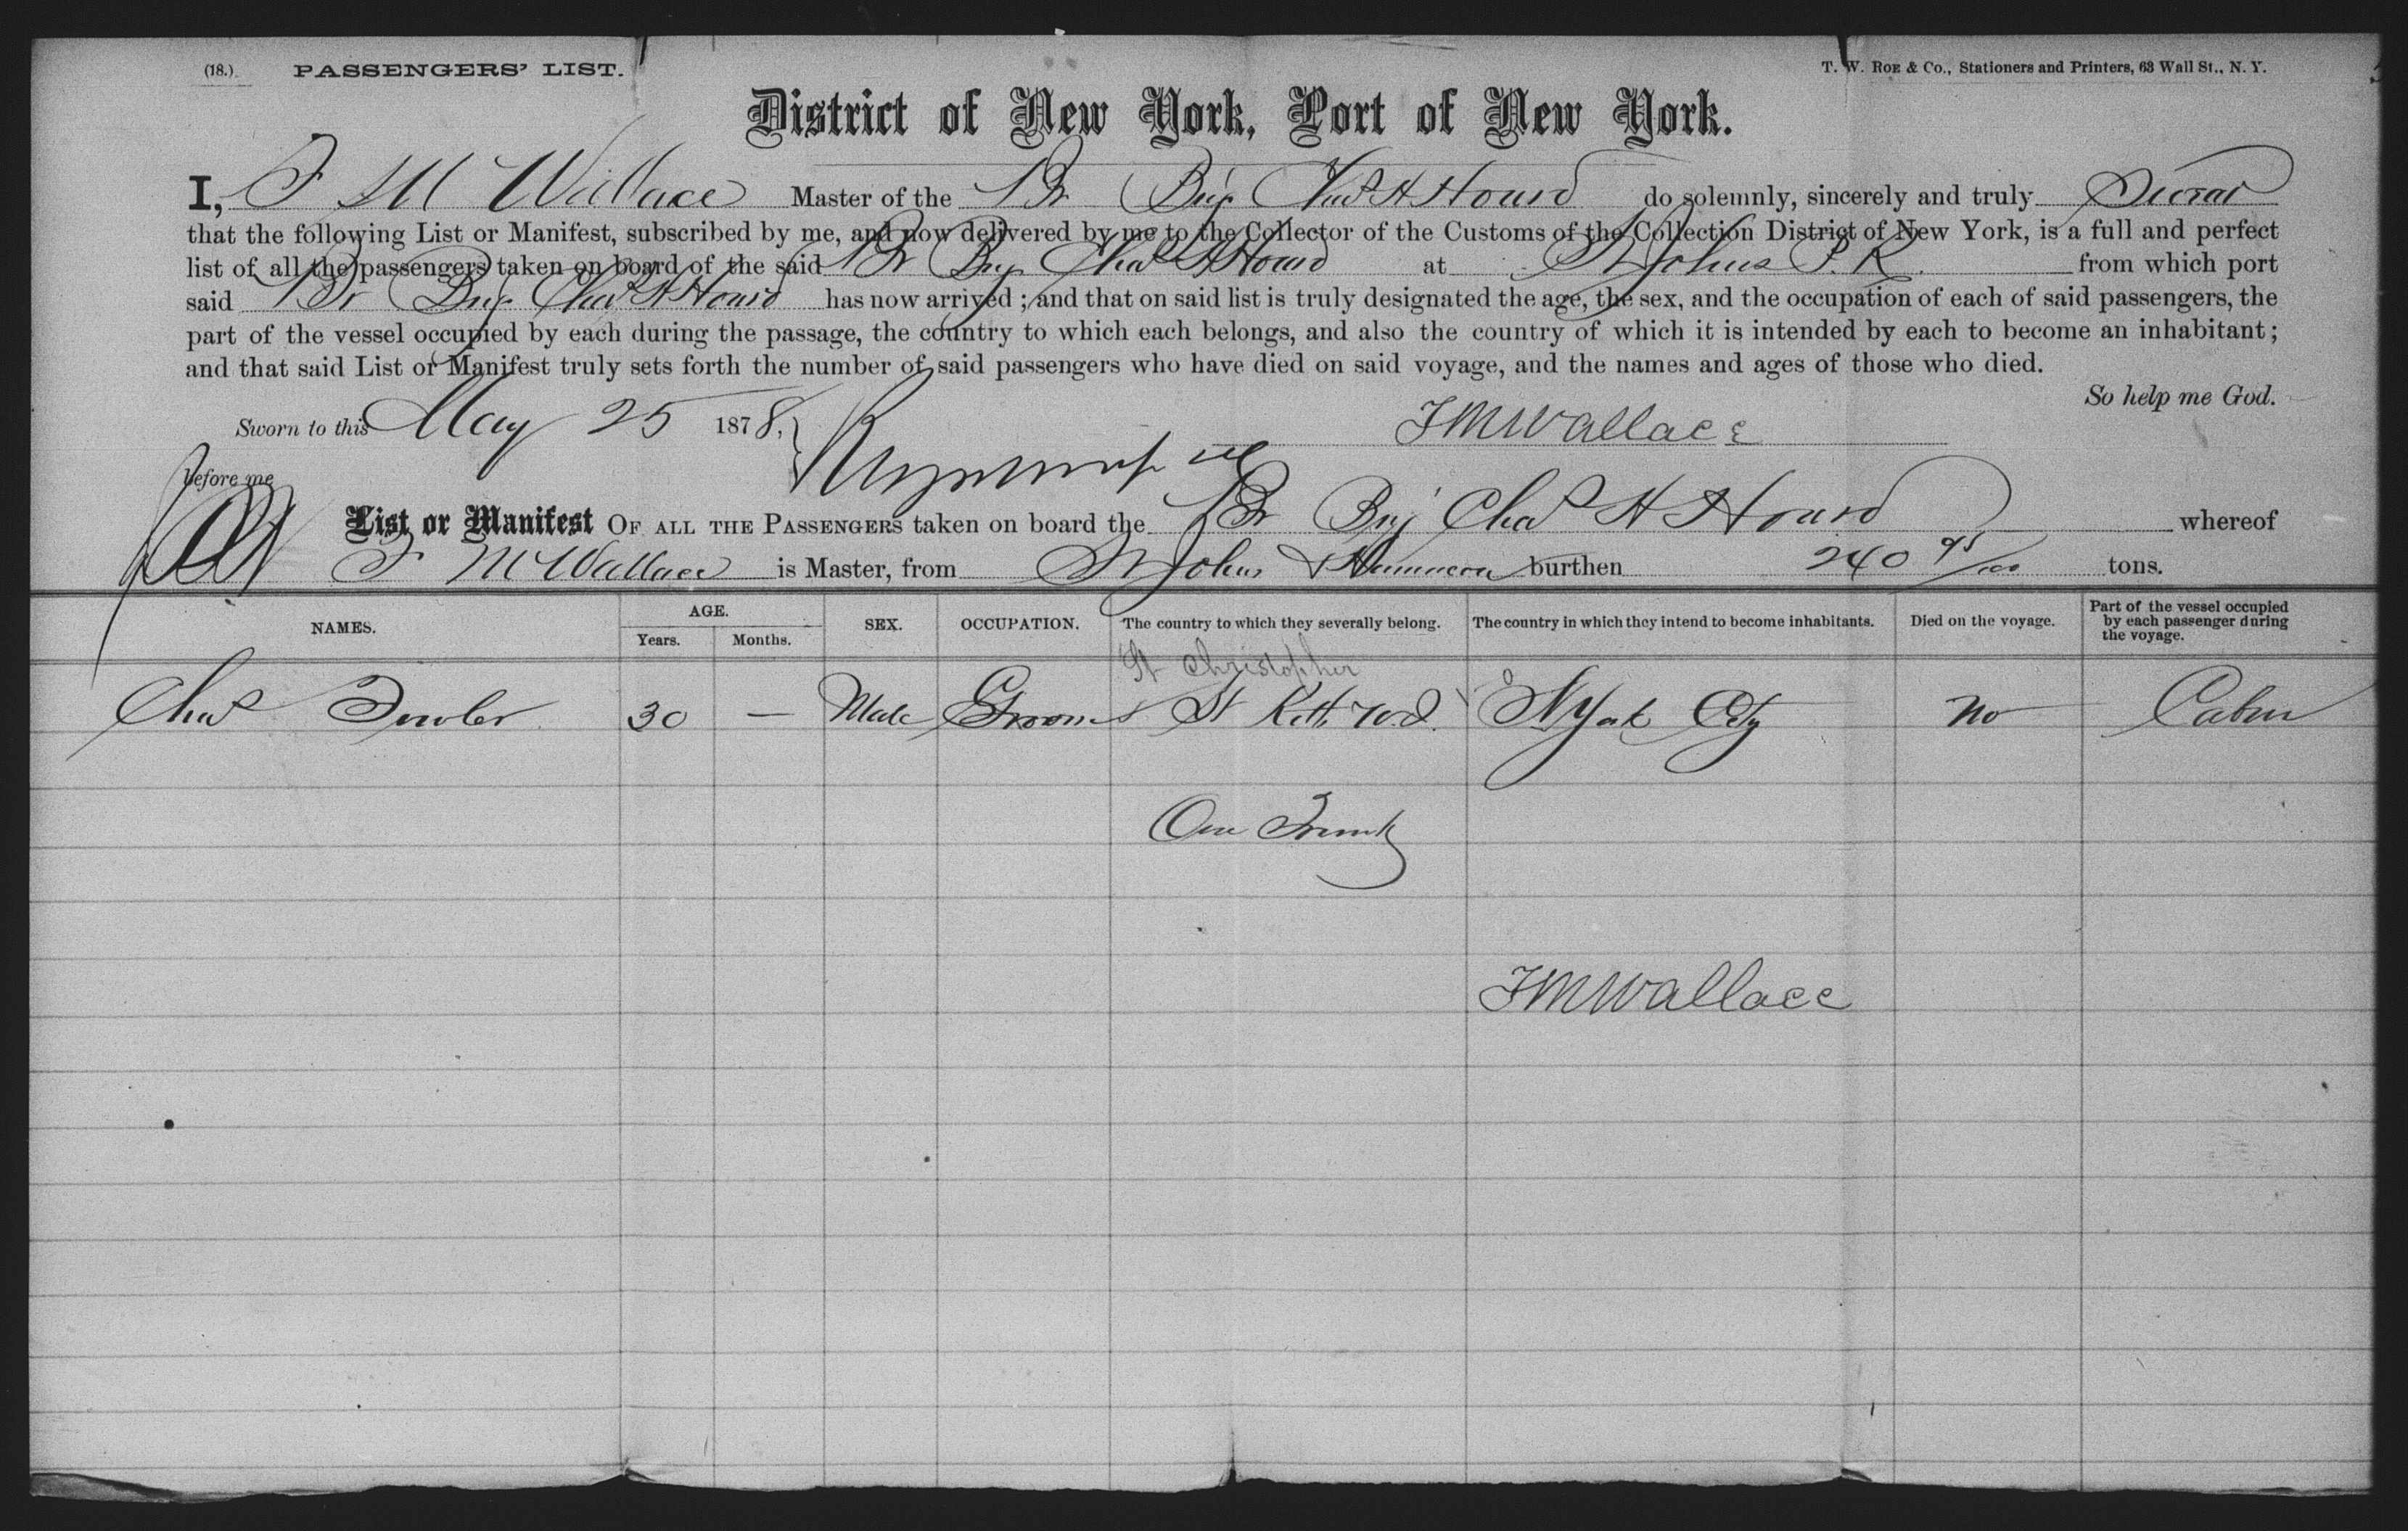 (18.) PASSENGERS' LIST. T. W. ROE & Co., Stationers and Printers, 63 Wall St., N. Y.
District of New York, Port of New York.
I, F M Wallace Master of the Br Brig Chas H Hourd do solemnly, sincerely and truly Swear
that the following List or Manifest, subscribed by me, and now delivered by me to the Collector of the Customs of the Collection District of New York, is a full and perfect
list of all the passengers taken on board of the said Br Brig Chas H Hourd at St Johns P. R. from which port
said Br Brig Chas H Hourd has now arrived; and that on said list is truly designated the age, the sex, and the occupation of each of said passengers, the
part of the vessel occupied by each during the passage, the country to which each belongs, and also the country of which it is intended by each to become an inhabitant;
and that said List or Manifest truly sets forth the number of said passengers who have died on said voyage, and the names and ages of those who died.
So help me God.
Sworn to this May 25 1878, FMWallace
before me
List or Manifest OF ALL THE PASSENGERS taken on board the Br Brig Chas H Hourd whereof
F M Wallace is Master, from St Johns & burthen 240 95/100 tons.
NAMES. AGE. SEX. OCCUPATION. The country to which they severally belong. The country in which they intend to become inhabitants. Died on the voyage. Part of the vessel occupied by each passenger during the voyage.
Years. Months.
St Christopher
Chas Fowler 30 — Male Groom St Kitts W.I. N York City No Cabin
One Trunk
FMWallace